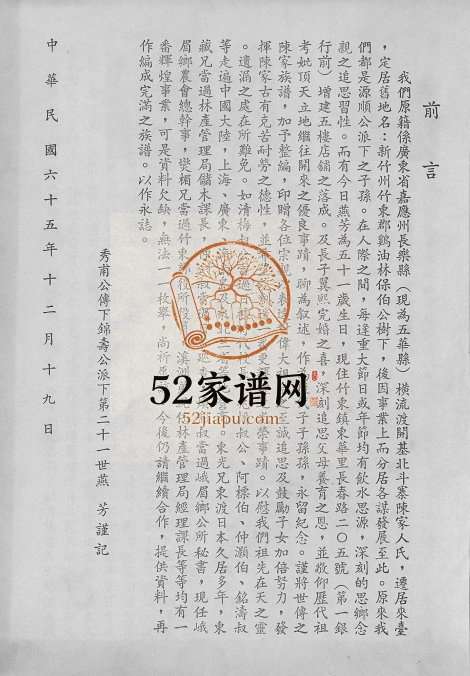 前言
我們原籍係廣東省嘉應州長樂縣（現為五華縣）橫流渡開基北斗寨陳家人氏，遷居來臺
，定居舊地名：新竹州竹東郡鷄油林保伯公樹下，後因事業上而分居各謀發展至此。原來我
們都是源順公派下之子孫。在人際之間，每逢重大節日或年節均有飲水思源，深刻的思鄉念
親之追思習性。而有今日燕芳為五十一歲生日，現住竹東鎮東華里長春路二○五號（第一銀
行前）增建五樓店鋪之落成。及長子翼熙完婚之喜，深刻追思父母養育之恩，並敬仰歷代祖
考妣頂天立地繼往開來之優良事蹟，聊為叙述，作 子子孫孫，永留紀念。謹將世傳之
陳家族譜，加予整編，印贈各位宗親 偉大祖 之至誠追思及鼓勵子女加倍努力，發
揮陳家古有克苦耐勞之德性，並 榮事蹟。以慰我們祖先在天之靈
。遺漏之處在所難免。如清梅叔 叔公、阿樑伯、仲灝伯、銘濤叔
等走遍中國大陸，上海、廣東、 東光兄東渡日本久居多年，東
藏兄當過林產管理局儲木課長， 叔當過峨眉鄉公所秘書，現任峨
眉鄉農會總幹事，焿楣兄當過竹東 林產管理局經理課長等等均有一
番輝煌事業，可是資料欠缺，無法一一枚舉，尚祈 今後仍請繼續合作，提供資料，再
作編成完滿之族譜。以作永誌。
秀甫公傳下錦壽公派下第二十一世燕芳謹記
中華民國六十五年十二月十九日
52家谱网
52jiapu.com